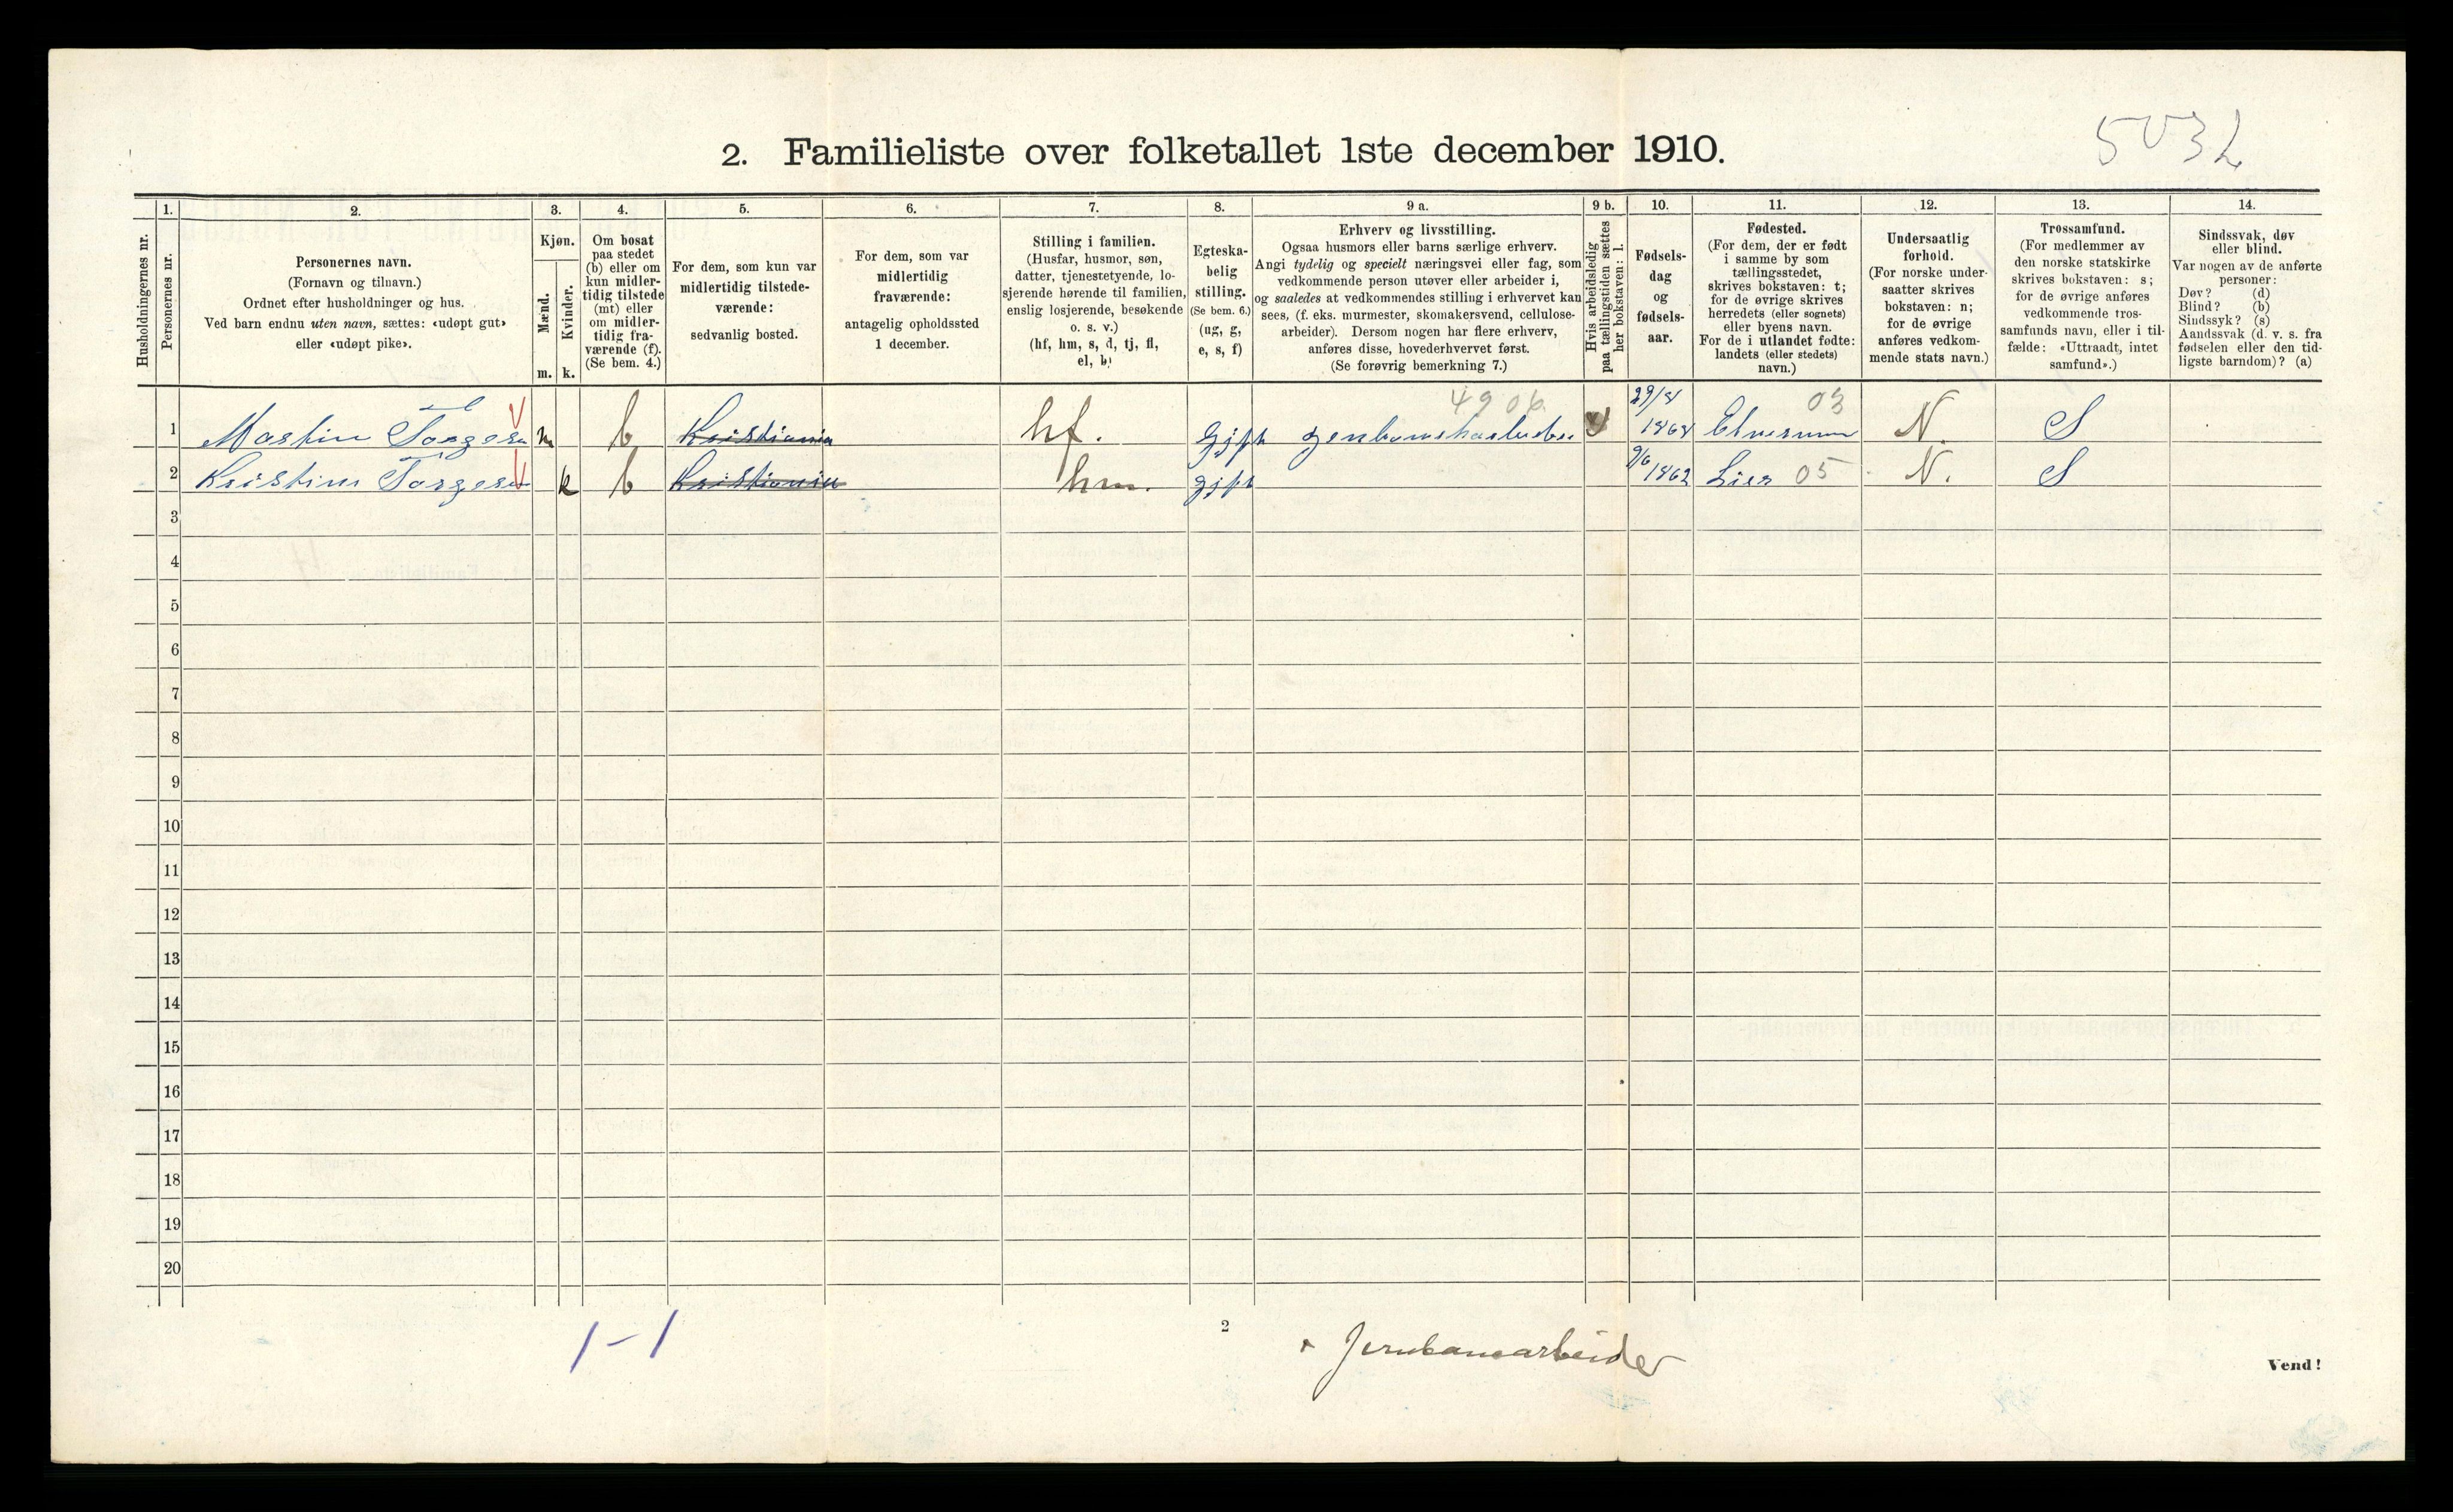 5032
2. Familieliste over folketallet 1ste december 1910.
1. 2. 3. 4. 5. 6. 7. 8. 9 a. 9 b. 10. 11. 12. 13. 14.
Husholdningernes nr.
Personernes nr.
Personernes navn.
(Fornavn og tilnavn.)
Ordnet efter husholdninger og hus.
Ved barn endnu uten navn, sættes: «udøpt gut»
eller «udøpt pike».
Kjøn.
Mænd.
Kvinder.
m. k.
Om bosat
paa stedet
(b) eller om
kun midler-
tidig tilstede
(mt) eller
om midler-
tidig fra-
værende (f).
(Se bem. 4.)
For dem, som kun var
midlertidig tilstede-
værende:
sedvanlig bosted.
For dem, som var
midlertidig
fraværende:
antagelig opholdssted
1 december.
Stilling i familien.
(Husfar, husmor, søn,
datter, tjenestetyende, lo-
sjerende hørende til familien,
enslig losjerende, besøkende
o. s. v.)
(hf, hm, s, d, tj, fl,
el, b)
Egteska-
belig
stilling.
(Se bem. 6.)
(ug, g,
e, s, f)
Erhverv og livsstilling.
Ogsaa husmors eller barns særlige erhverv.
Angi tydelig og specielt næringsvei eller fag, som
vedkommende person utøver eller arbeider i,
og saaledes at vedkommendes stilling i erhvervet kan
sees, (f. eks. murmester, skomakersvend, cellulose-
arbeider). Dersom nogen har flere erhverv,
anføres disse, hovederhvervet først.
(Se forøvrig bemerkning 7.)
Hvis arbeidsledig
paa tællingstiden sættes
her bokstaven: l.
Fødsels-
dag
og
fødsels-
aar.
Fødested.
(For dem, der er født
i samme by som
tællingsstedet,
skrives bokstaven: t;
for de øvrige skrives
herredets (eller sognets)
eller byens navn.
For de i utlandet fødte:
landets (eller stedets)
navn.)
Undersaatlig
forhold.
(For norske under-
saatter skrives
bokstaven: n;
for de øvrige
anføres vedkom-
mende stats navn.)
Trossamfund.
(For medlemmer av
den norske statskirke
skrives bokstaven: s;
for de øvrige anføres
vedkommende tros-
samfunds navn, eller i til-
fælde: «Uttraadt, intet
samfund».)
Sindssvak, døv
eller blind.
Var nogen av de anførte
personer:
Døv? (d)
Blind? (b)
Sindssyk? (s)
Aandssvak (d. v. s. fra
fødselen eller den tid-
ligste barndom)? (a)
1 Martin Torgersen m b Kristiania hf. gift 4906 1868 Elverum 03 N. S
2 Kristine Torgersen k b Kristiania hm. gift 9/6 1862 Lier 05 N. S
3
4
5
6
7
8
9
10
11
12
13
14
15
16
17
18
19
20
1-1
2
Jernbanearbeider
Vend!